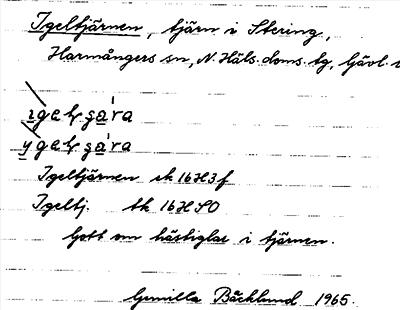 Igeltjärnen, tjärn i Stering,
Harmångers sn, N. Häls. doms. tg, Gävl.
Igeltjärnen ek 16H3f
Igeltj. tk 16H SO
Gott om hästiglar i tjärnen.
Gunilla Bäcklund 1965.